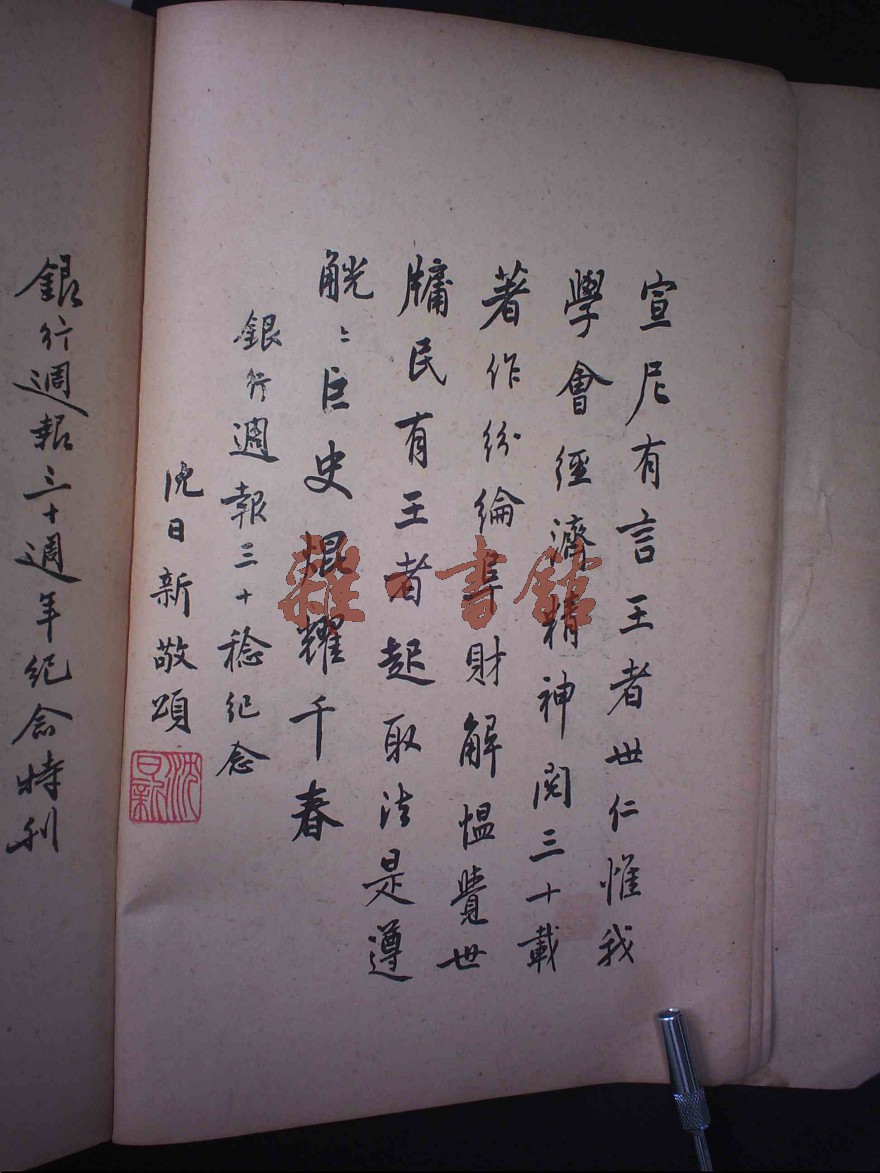 宣尼有言王者世仁惟我
學會經濟精神閱三十載
著作紛綸阜財解慍覺世
牖民有王者起取法是遵
觥〻巨史焜耀千春
銀行週報三十稔紀念
沈日新敬頌
沈日新
銀行週報三十週年紀念特刊
雜·書館